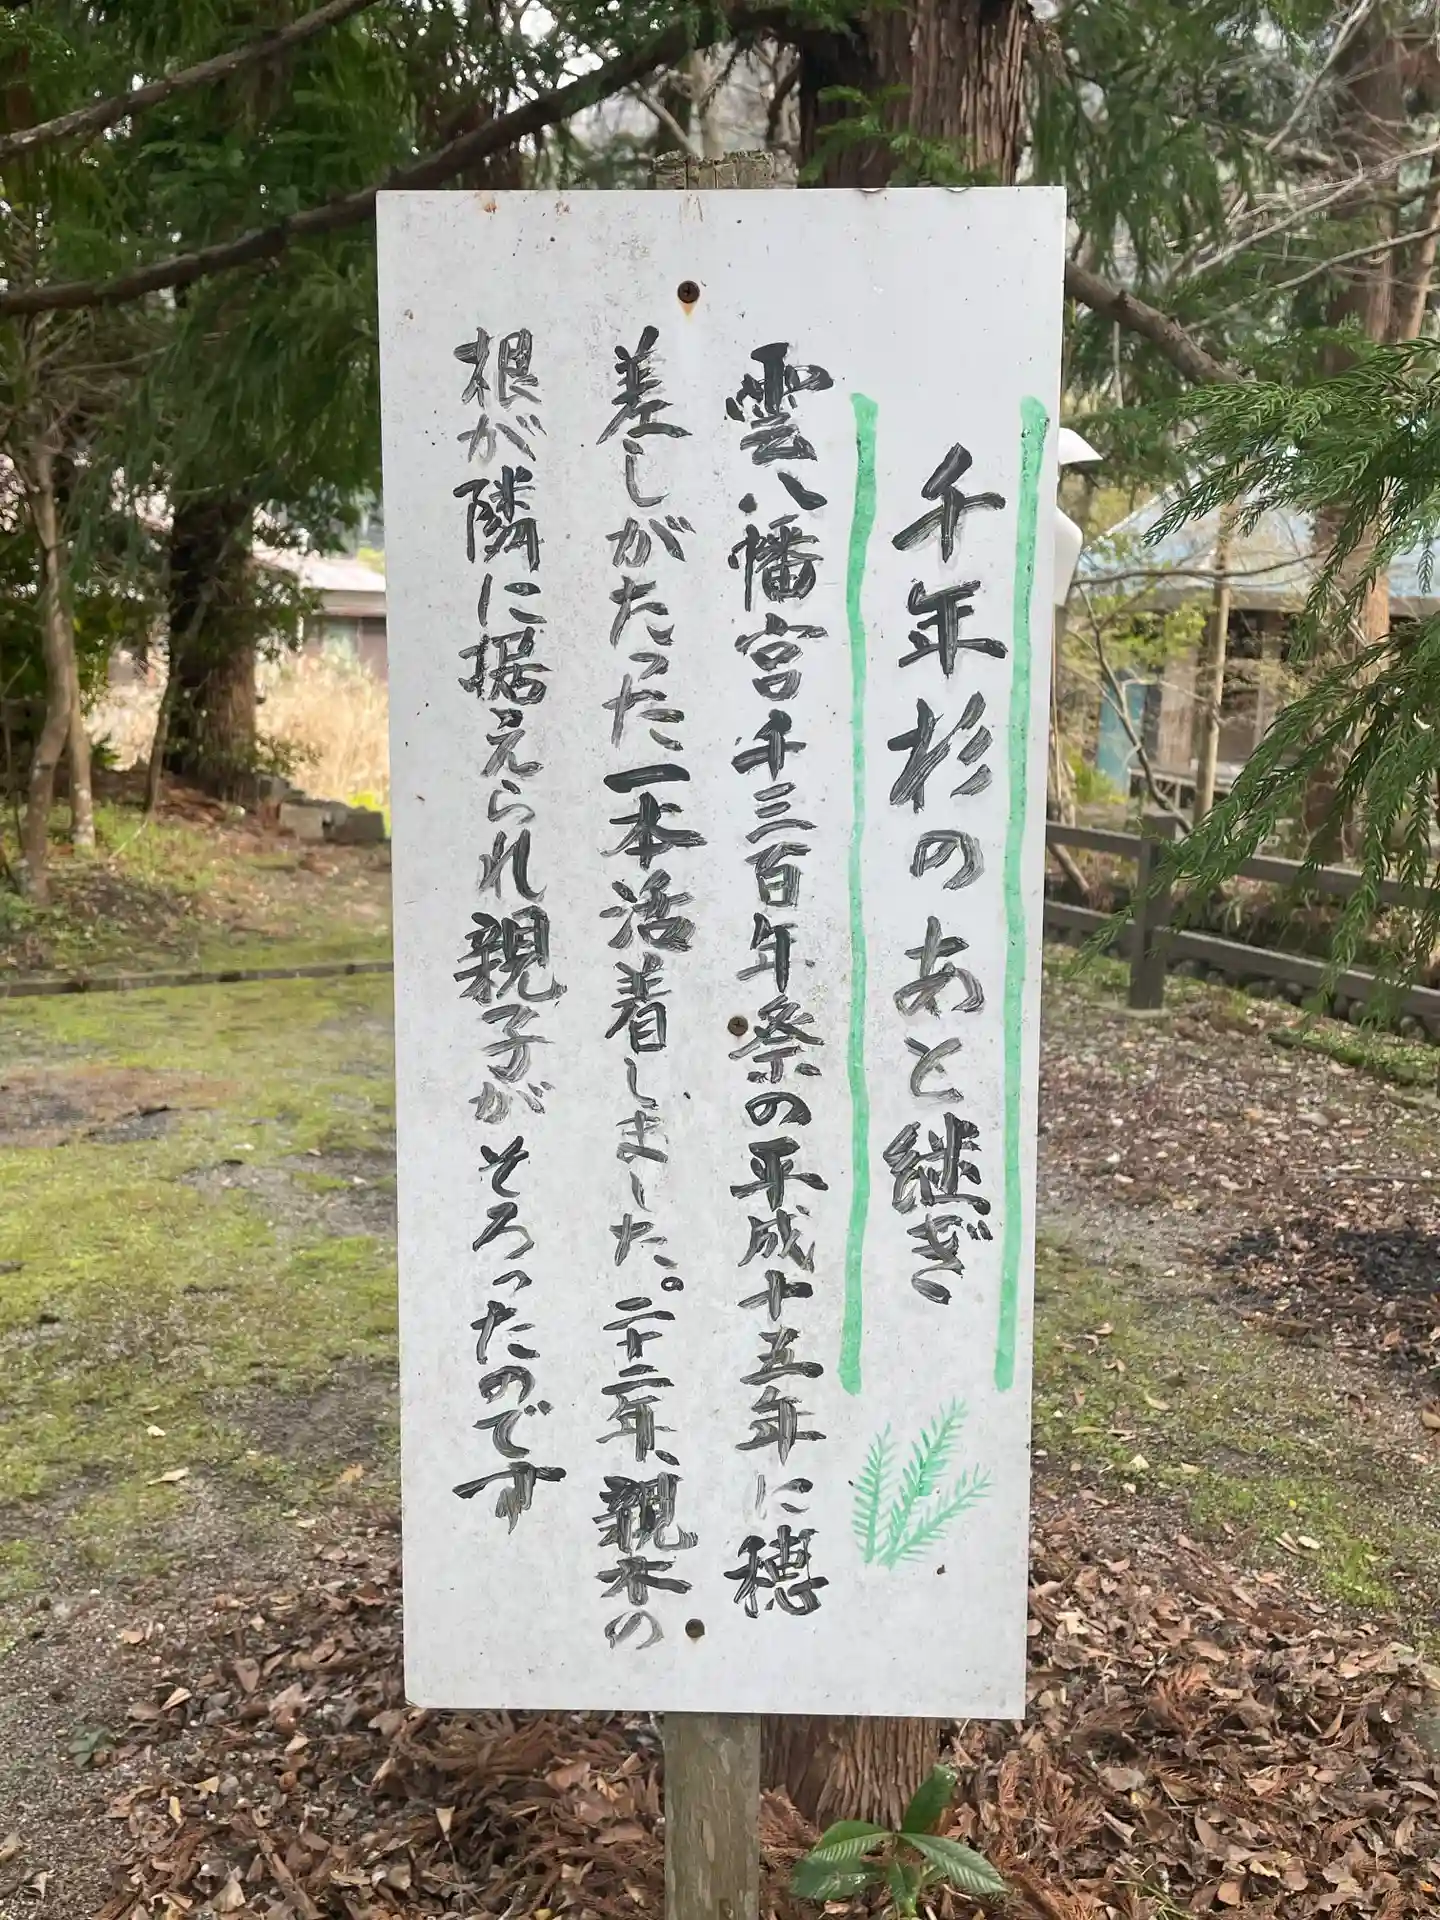 千年杉のあと継ぎ
雲八幡宮千三百年祭の平成十五年に穂
差しがたった一本活着しました。二十二年、親木の
根が隣に据えられ親子がそろったのです